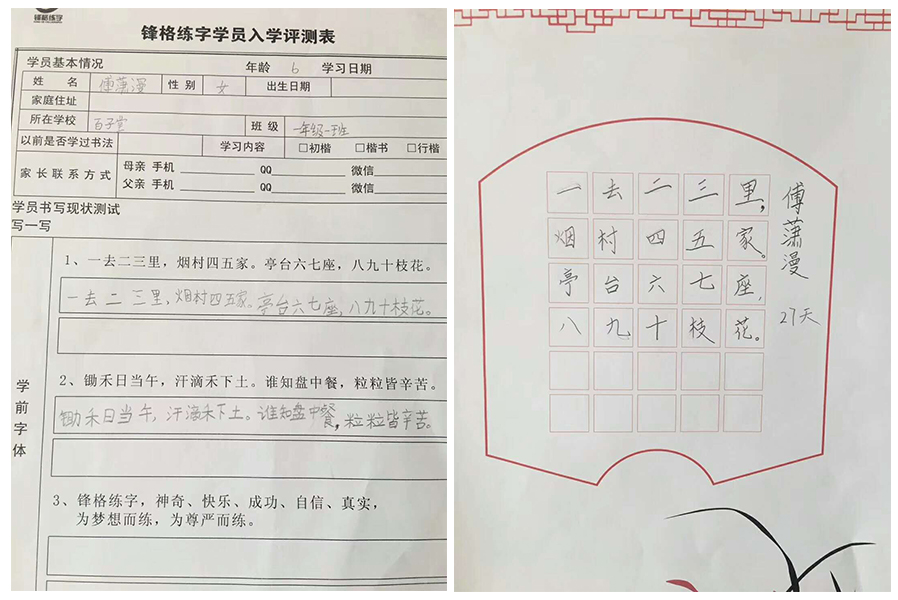 锋格练字
锋格练字学员入学评测表
学员基本情况 年龄 6 学习日期
姓 名 傅萧漫 性 别 女 出生日期
家庭住址
所在学校 百子堂 班 级 一年级一班
以前是否学过书法 学习内容 □初楷 □楷书 □行楷
家长联系方式
母亲 手机 QQ 微信
父亲 手机 QQ 微信
学员书写现状测试
写一写
学前字体
1、一去二三里，烟村四五家。亭台六七座，八九十枝花。
一去二三里，烟村四五家。亭台六七座，八九十枝花。
2、锄禾日当午，汗滴禾下土。谁知盘中餐，粒粒皆辛苦。
锄禾日当午，汗滴禾下土。谁知盘中餐，粒粒皆辛苦。
3、锋格练字，神奇、快乐、成功、自信、真实，
为梦想而练，为尊严而练。
一去二三里，
烟村四五家。
亭台六七座，
八九十枝花。
傅萧漫
27天